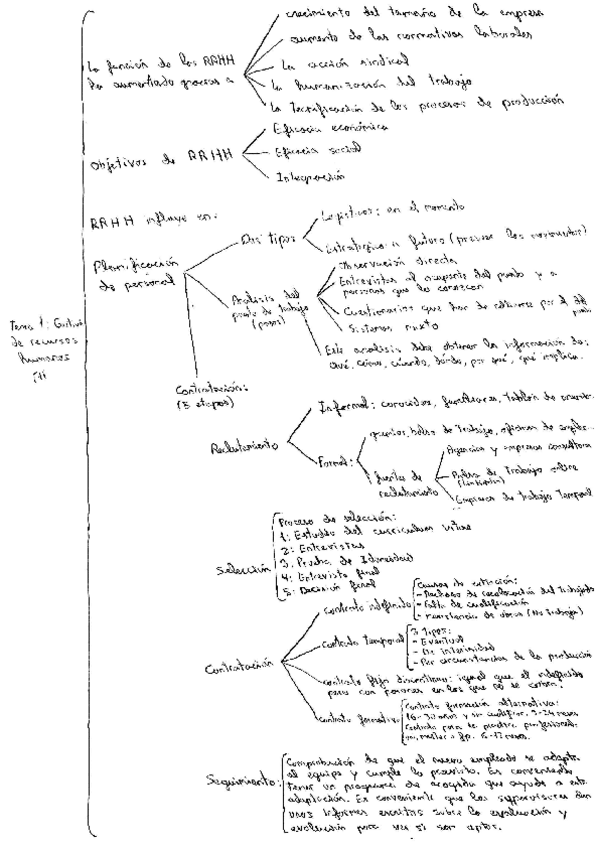 crecimiento del tamaño de la empresa
aumento de las normativas laborales
La función de los RRHH
ha aumentado gracias a
La acción sindical
La humanización del trabajo
La tecnificación de los procesos de producción
Objetivos de RRHH
Eficacia económica
Eficacia social
Integración
RRHH influye en:
Planificación
de personal
Dos tipos
Logísticos: en el momento
Estratégico a futuro (prever los movimientos)
Análisis del
puesto de trabajo
Observación directa
Entrevistas al ocupante del puesto y a
personas que lo conozcan
Cuestionarios que han de rellenarse por el
puesto
Sistemas mixto
Este análisis debe obtener la información de:
Qué, cómo, cuándo, dónde, por qué, qué implica.
Tema 1: Gestión
de recursos
humanos
Contratación:
(5 etapas)
Reclutamiento
Informal: conocidos, familiares, tablón de
Formal:
bolsa de trabajo, oficinas de empleo...
fuentes de
reclutamiento
Agencias y empresas consultora
Bolsa de Trabajo online
(Linkedin)
Empresas de trabajo Temporal
Selección
Proceso de selección:
1: Estudio del curriculum vitae
2: Entrevistas
3. Prueba de Idoneidad
4: Entrevista final
5: Decisión final
Contratación
contrato indefinido
Causas de extinción:
- Rechazo de recolocación del trabajador
- Falta de cualificación
- de obras (No trabajo)
contrato temporal
3 Tipos:
- Eventual
- De interinidad
- Por circunstancias de la producción
contrato fijo discontinuo: igual que el indefinido
pero con periodos en los que no se cobra.
contrato formativo
Contrato formación alternativa:
16-30 años y sin cualificar. 3-24 meses
Contrato para la practica profesional:
master o fp. 6-12 meses.
Seguimiento:
Comprobación de que el nuevo empleado se adapta
al equipo y cumple lo previsto. Es conveniente
tener un programa de acogida que ayude a esta
adaptación. Es conveniente que los supervisores
unos informes escritos sobre la evaluación y
evolución para ver si son aptos.